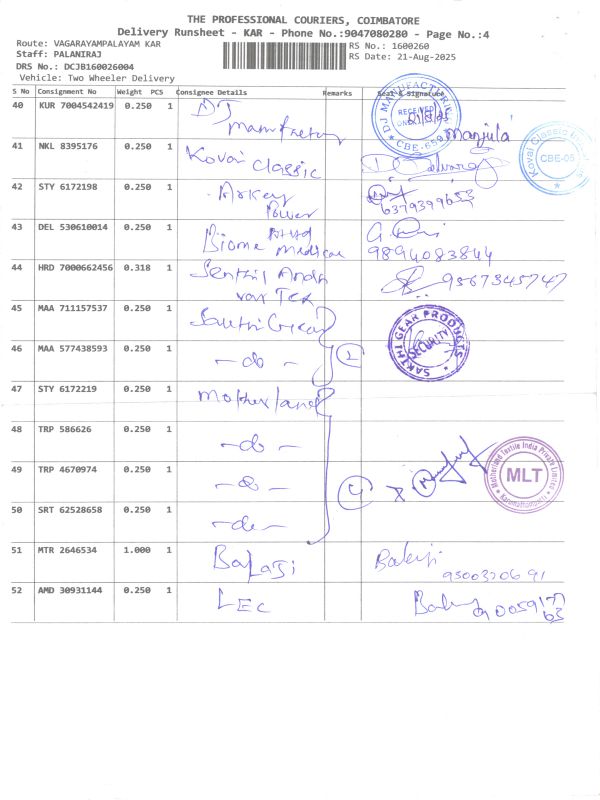 THE PROFESSIONAL COURIERS, COIMBATORE
Delivery Runsheet - KAR - Phone No.:9047080280 - Page No.:4
Route: VAGARAYAMPALAYAM KAR
RS No.: 1600260
Staff: PALANIRAJ
RS Date: 21-Aug-2025
DRS No.: DCJB160026004
Vehicle: Two Wheeler Delivery
S No Consignment No Weight PCS Consignee Details Remarks Seal & Signature
40 KUR 7004542419 0.250 1 DJ
Manjula
41 NKL 8395176 0.250 1 Kovai Classic
42 STY 6172198 0.250 1 Arkey
Power 6379399653
43 DEL 530610014 0.250 1
Biome Medical 9894083844
44 HRD 7000662456 0.318 1 Senthil 9567345747
45 MAA 711157537 0.250 1 Sakthi Gear
46 MAA 577438593 0.250 1 - do - 2
47 STY 6172219 0.250 1 Motherland
48 TRP 586626 0.250 1 - do -
49 TRP 4670974 0.250 1 - do - 4
50 SRT 62528658 0.250 1 - do -
51 MTR 2646534 1.000 1 Balaji Balaji
9500320691
52 AMD 30931144 0.250 1 LEC
DJ MANUFACTURING
RECEIVED
CBE-659
Kovai Classic
CBE-05
SAKTHI GEAR PRODUCTS
SECURITY
Motherland Textile India Private Limited
MLT
Karumathampatti